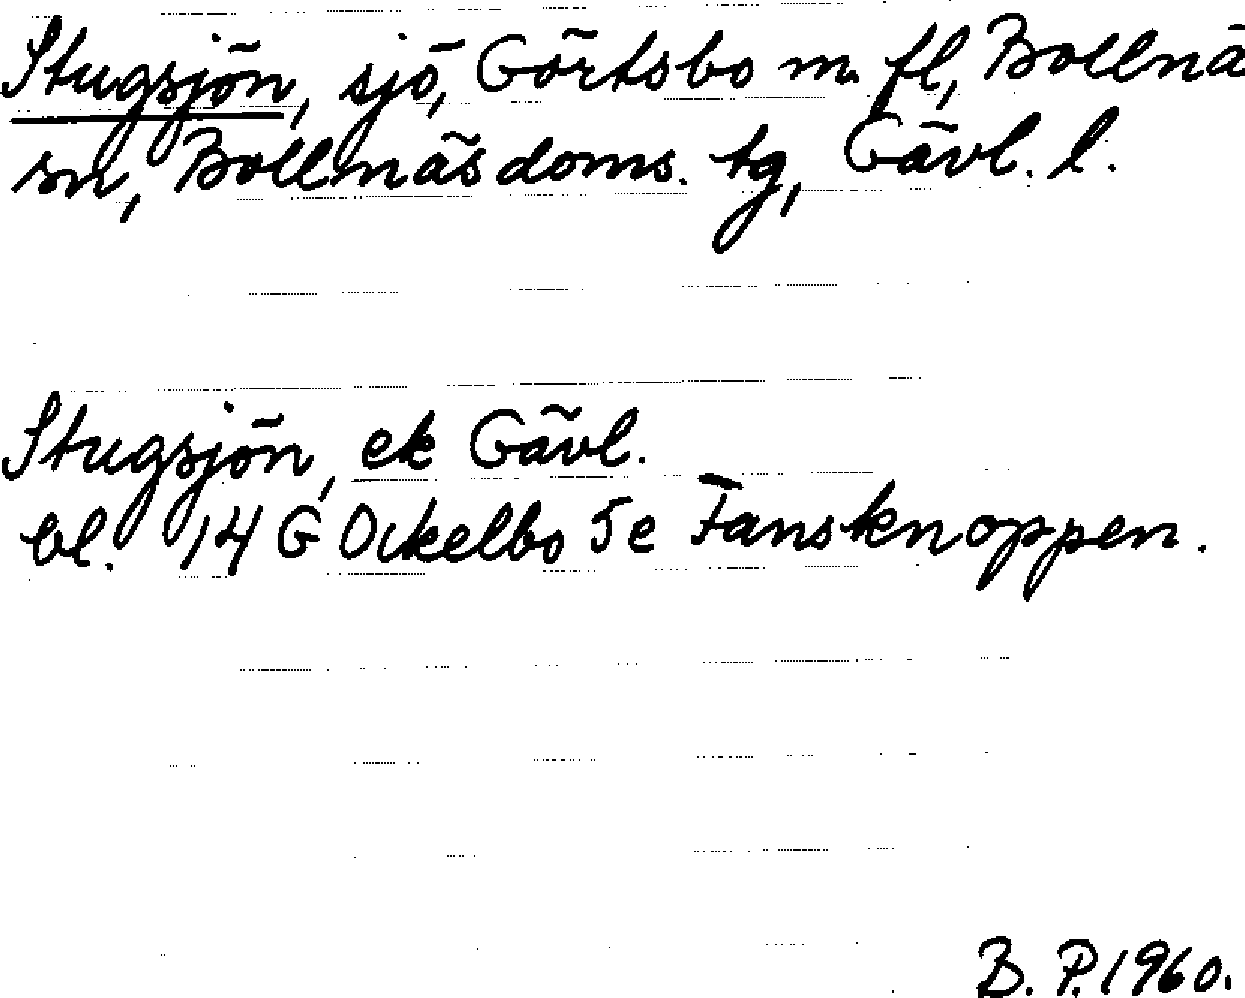 Stugsjön, sjö, Görtsbo m. fl, Bollnä
sn, Bollnäsdoms. tg, Gävl. l.
Stugsjön, ek Gävl.
bl. 14 G Ockelbo 5e Fansknoppen.
B. P. 1960.